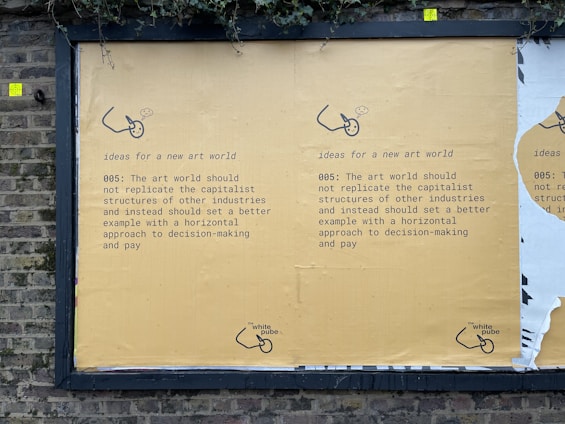 ideas for a new art world
005: The art world should
not replicate the capitalist
structures of other industries
and instead should set a better
example with a horizontal
approach to decision-making
and pay
the
white
pube
ideas for a new art world
005: The art world should
not replicate the capitalist
structures of other industries
and instead should set a better
example with a horizontal
approach to decision-making
and pay
the
white
pube
ideas
005:
not re
struct